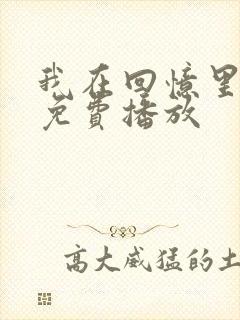 我在回憶里
免費播放
高大威猛的土